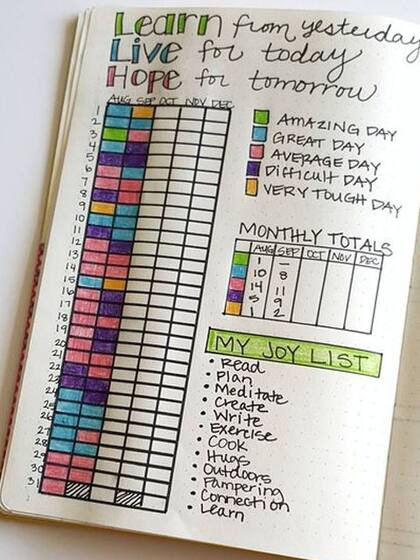 Learn from yesterday
Live for today
Hope for tomorrow
AUG SEP OCT NOV DEC
1
2
3
4
5
6
7
8
9
10
11
12
13
14
15
16
17
18
19
20
21
22
23
24
25
26
27
28
29
30
31
AMAZING DAY
GREAT DAY
AVERAGE DAY
DIFFICULT DAY
VERY TOUGH DAY
MONTHLY TOTALS
AUG SEP OCT NOV DEC
1 —
10 8
14 11
5 9
1 2
MY JOY LIST
• Read
• Plan
• Meditate
• Create
• Write
• Exercise
• Cook
• Hugs
• Outdoors
• Pampering
• Connection
• Learn